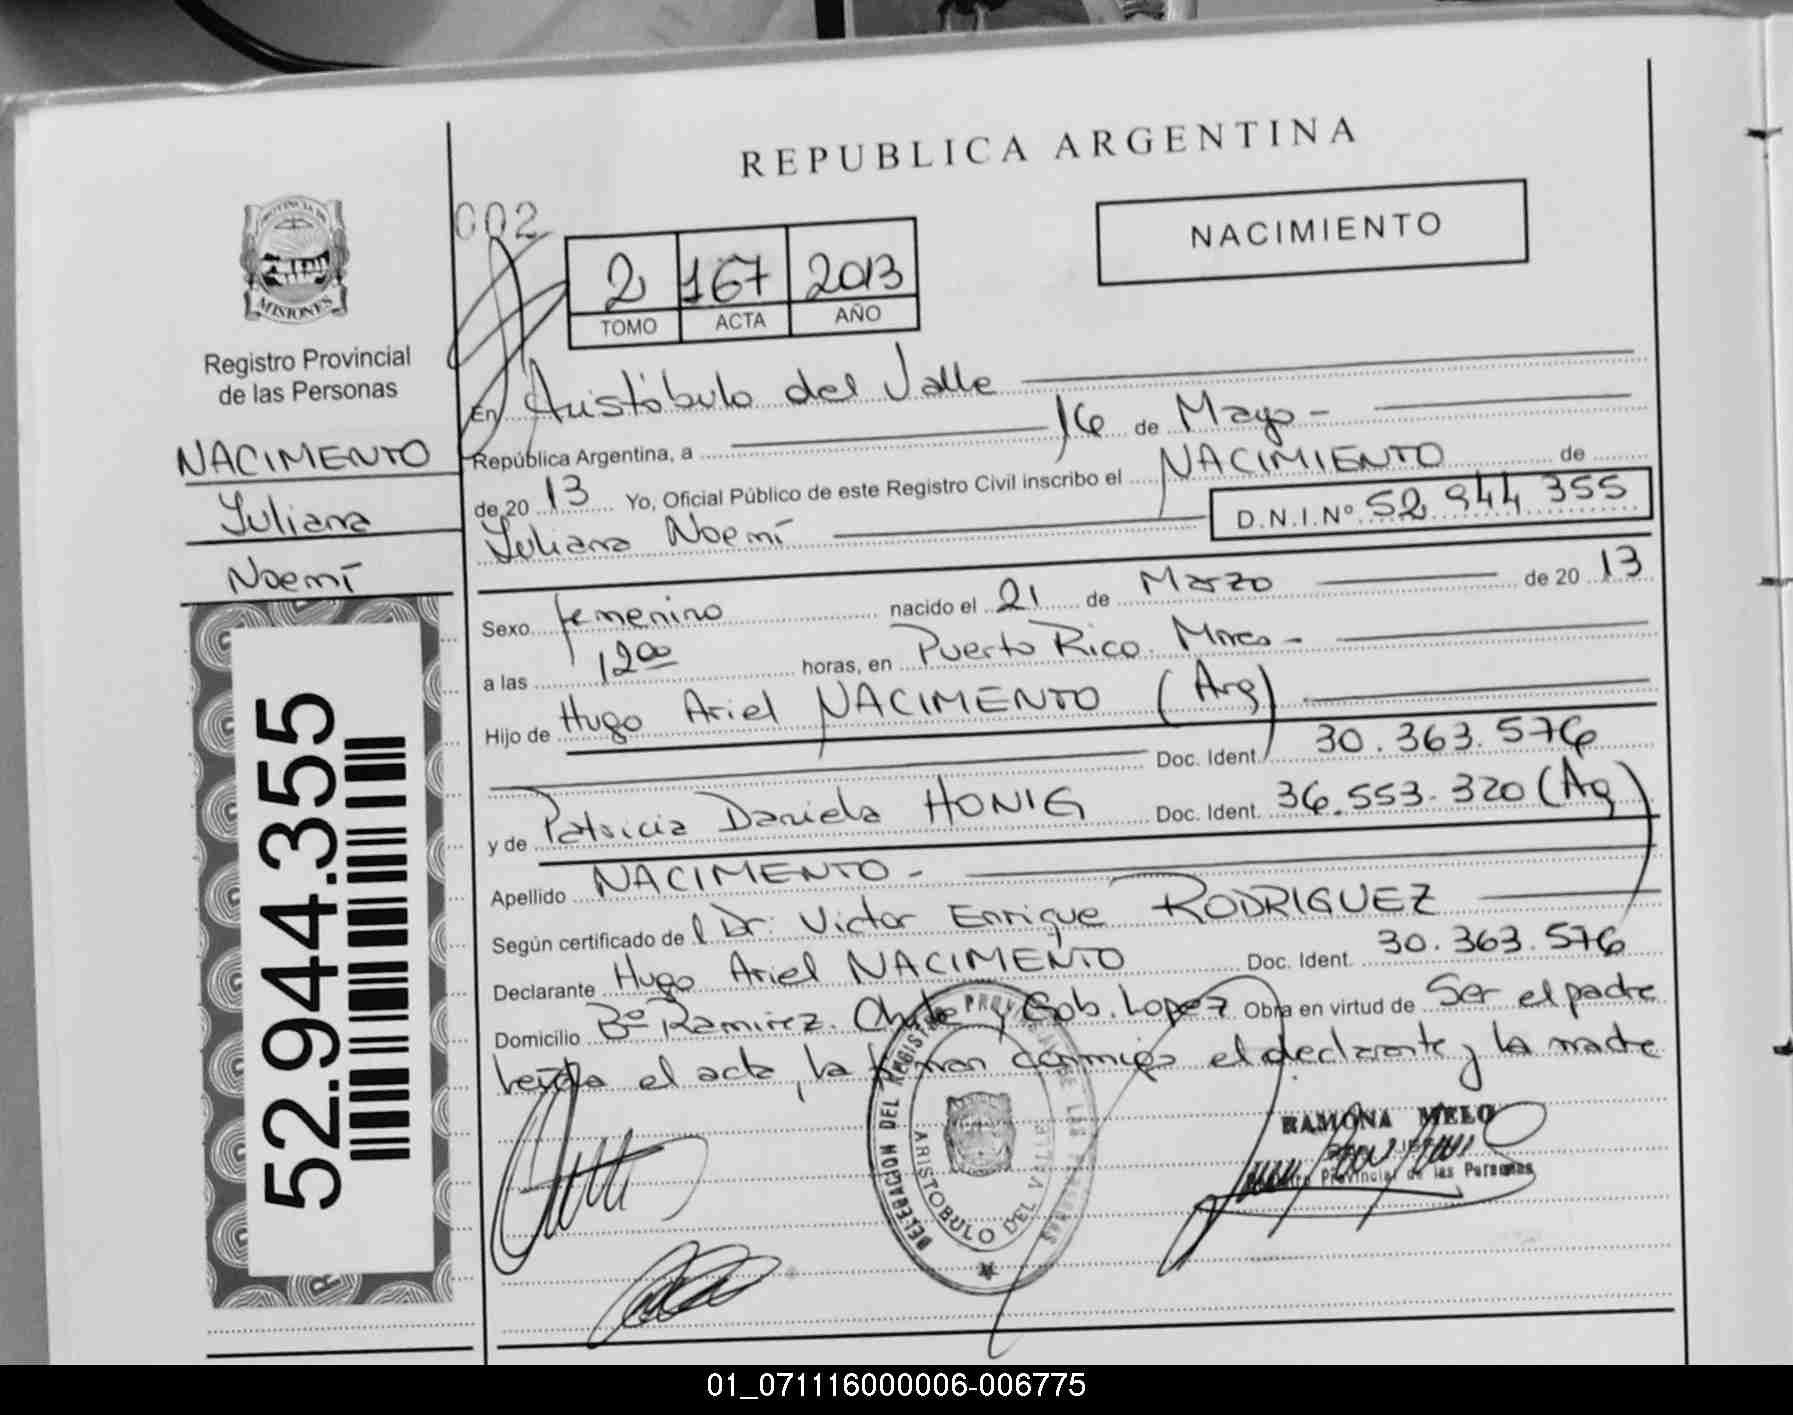 REPUBLICA ARGENTINA
PROVINCIA DE
MISIONES
Registro Provincial
de las Personas
NACIMENTO
Yuliana
Noemí
52.944.355
002
2 167 2013
TOMO ACTA AÑO
NACIMIENTO
En Aristóbulo del Valle
República Argentina, a 16 de Mayo -
de 20 13 Yo, Oficial Público de este Registro Civil inscribo el NACIMIENTO de
Yuliana Noemí D.N.I.Nº 52 944 355
Sexo femenino nacido el 21 de Marzo de 20 13
a las 12 00 horas, en Puerto Rico. Mnes -
Hijo de Hugo Ariel NACIMENTO (Arg)
Doc. Ident. 30.363.576
y de Patricia Daniela HONIG Doc. Ident. 36.553.320 (Ag)
Apellido NACIMENTO -
Según certificado de l Dr. Victor Enrique RODRIGUEZ
Declarante Hugo Ariel NACIMENTO Doc. Ident. 30.363.576
Domicilio Bº Ramirez. y Gob. Lopez Obra en virtud de Ser el padre
Leída el acta, la firman conmigo el declarante y la madre
DELEGACION DEL REGISTRO PROVINCIAL DE LAS PERSONAS
ARISTOBULO DEL VALLE
RAMONA MELO
Provincial de las Personas
01_071116000006-006775